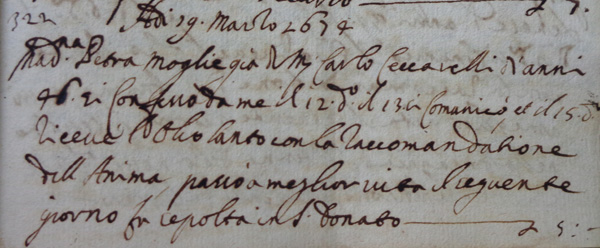 322
Adi 29. Marzo 1674
Mad.na Petra moglie già di M. Carlo Ceccarelli d'anni
46. si Confessò da me il 12. do. il 13. si Comunicò, et il 15. do.
ricevè l'Olio Santo con la raccomandatione
dell'Anima, passò a meglior vita il seguente
giorno fu sepolta in S. Donato